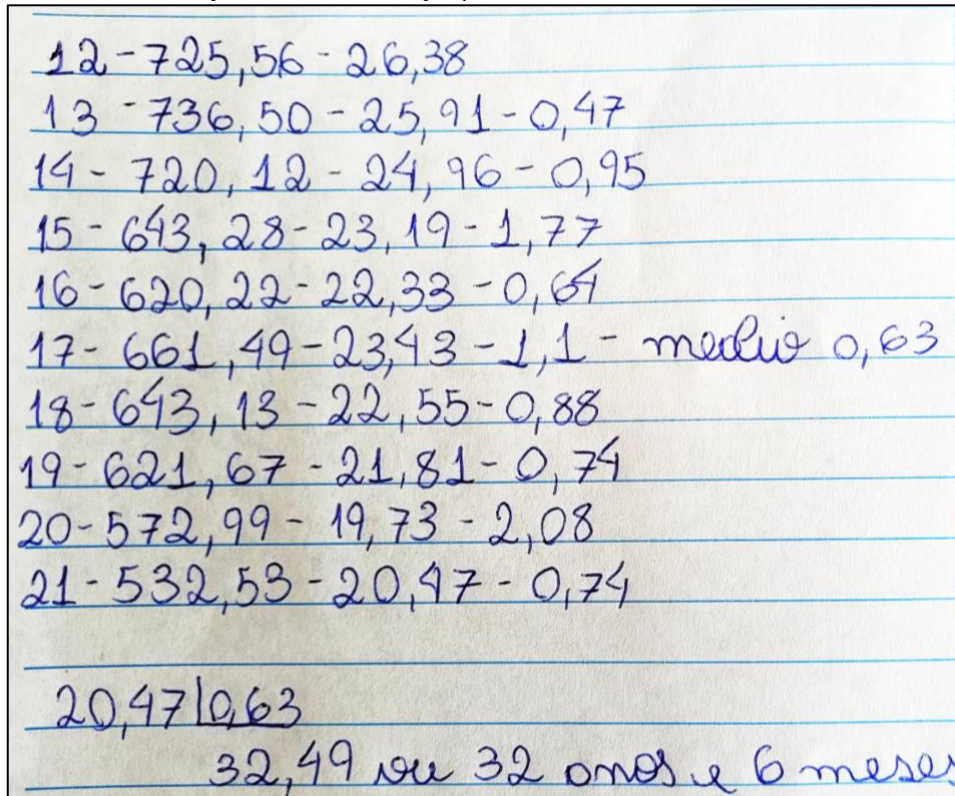 12-725,56-26,38
13-736,50-25,91-0,47
14-720,12-24,96-0,95
15-643,28-23,19-1,77
16-620,22-22,33-0,64
17-661,49-23,43-1,1- medio 0,63
18-643,13-22,55-0,88
19-621,67-21,81-0,74
20-572,99-19,73-2,08
21-532,53-20,47-0,74
20,47 0,63
32,49 ou 32 anos e 6 meses